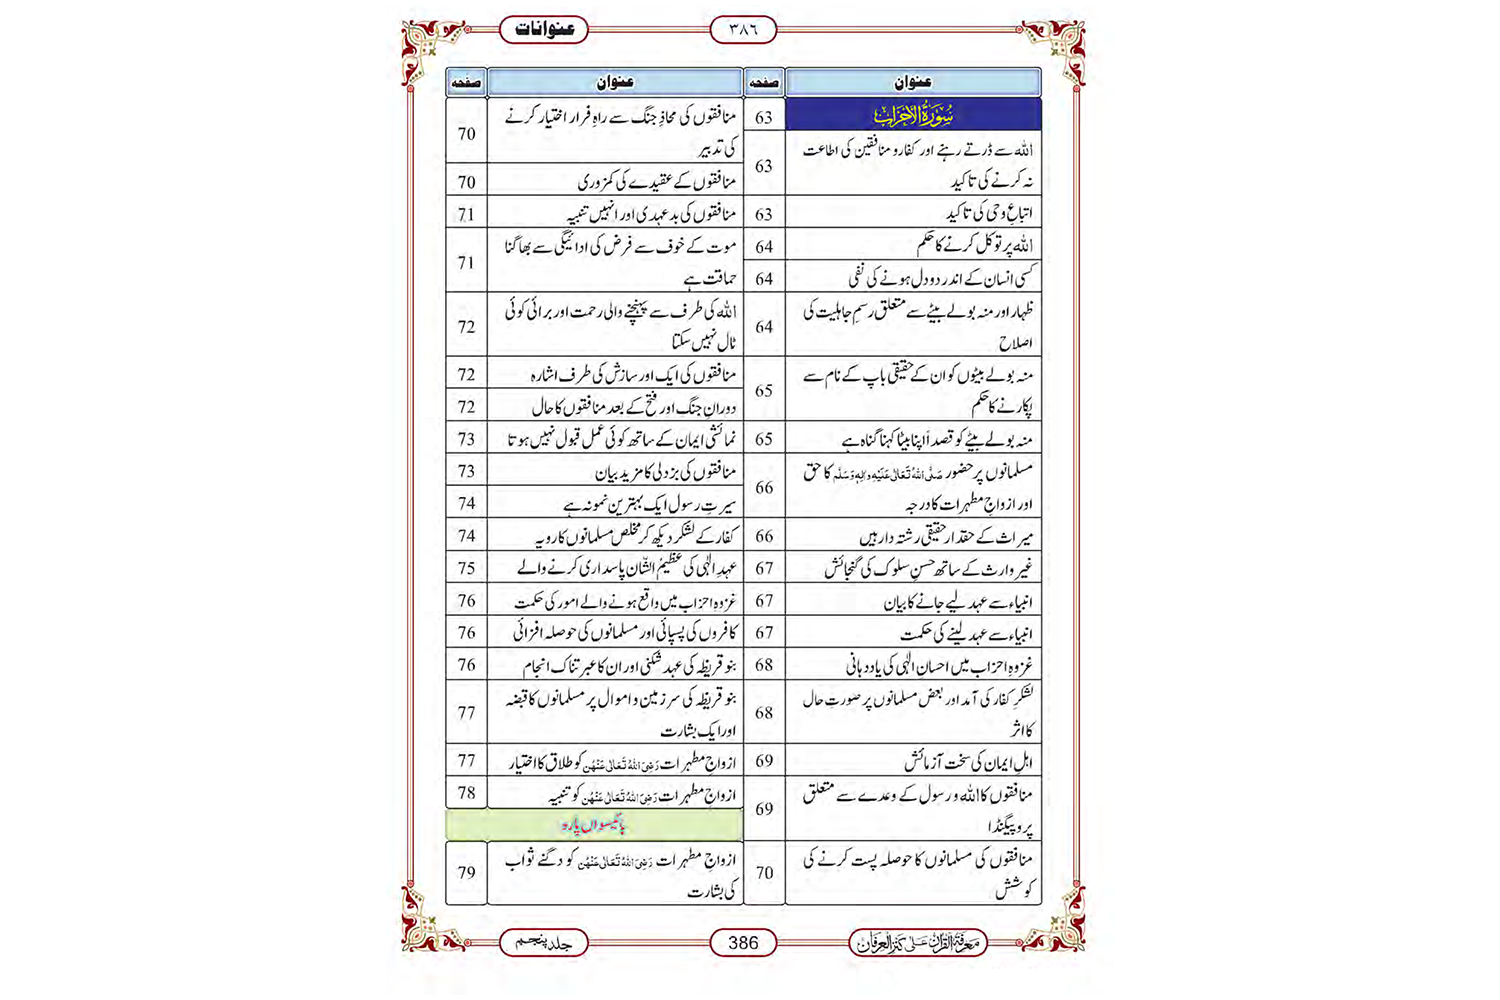 عنوانات
۳۸۶
عنوان صفحہ
سُوۡرَۃُ الۡاَحۡزَاب 63
اللہ سے ڈرتے رہنے اور کفار و منافقین کی اطاعت
نہ کرنے کی تاکید 63
اتباعِ وحی کی تاکید 63
اللہ پر توکل کرنے کا حکم 64
کسی انسان کے اندر دو دل ہونے کی نفی 64
ظہار اور منہ بولے بیٹے سے متعلق رسمِ جاہلیت کی
اصلاح 64
منہ بولے بیٹوں کو ان کے حقیقی باپ کے نام سے
پکارنے کا حکم 65
منہ بولے بیٹے کو قصداً اپنا بیٹا کہنا گناہ ہے 65
مسلمانوں پر حضور صَلَّی اللہُ تَعَالٰی عَلَیْہِ وَاٰلِہٖ وَسَلَّم کا حق
اور ازواجِ مطہرات کا درجہ 66
میراث کے حقدار حقیقی رشتہ دار ہیں 66
غیر وارث کے ساتھ حسنِ سلوک کی گنجائش 67
انبیاء سے عہد لیے جانے کا بیان 67
انبیاء سے عہد لینے کی حکمت 67
غزوہِ احزاب میں احسانِ الٰہی کی یاد دہانی 68
لشکرِ کفار کی آمد اور بعض مسلمانوں پر صورتِ حال
کا اثر 68
اہلِ ایمان کی سخت آزمائش 69
منافقوں کا اللہ و رسول کے وعدے سے متعلق
پروپیگنڈا 69
منافقوں کی مسلمانوں کا حوصلہ پست کرنے کی
کوشش 70
عنوان صفحہ
منافقوں کی محاذِ جنگ سے راہِ فرار اختیار کرنے
کی تدبیر 70
منافقوں کے عقیدے کی کمزوری 70
منافقوں کی بدعہدی اور انہیں تنبیہ 71
موت کے خوف سے فرض کی ادائیگی سے بھاگنا
حماقت ہے 71
اللہ کی طرف سے پہنچنے والی رحمت اور برائی کوئی
ٹال نہیں سکتا 72
منافقوں کی ایک اور سازش کی طرف اشارہ 72
دورانِ جنگ اور فتح کے بعد منافقوں کا حال 72
نمائشی ایمان کے ساتھ کوئی عمل قبول نہیں ہوتا 73
منافقوں کی بزدلی کا مزید بیان 73
سیرتِ رسول ایک بہترین نمونہ ہے 74
کفار کے لشکر دیکھ کر مخلص مسلمانوں کا رویہ 74
عہدِ الٰہی کی عظیمُ الشّان پاسداری کرنے والے 75
غزوہِ احزاب میں واقع ہونے والے امور کی حکمت 76
کافروں کی پسپائی اور مسلمانوں کی حوصلہ افزائی 76
بنو قریظہ کی عہد شکنی اور ان کا عبرتناک انجام 76
بنو قریظہ کی سرزمین و اموال پر مسلمانوں کا قبضہ
اور ایک بشارت 77
ازواجِ مطہرات رَضِیَ اللہُ تَعَالٰی عَنْہُن کو طلاق کا اختیار 77
ازواجِ مطہرات رَضِیَ اللہُ تَعَالٰی عَنْہُن کو تنبیہ 78
بائیسواں پارہ
ازواجِ مطہرات رَضِیَ اللہُ تَعَالٰی عَنْہُن کو دگنے ثواب
کی بشارت 79
معرفۃ القراٰن علیٰ کنز العرفان
386
جلد پنجم